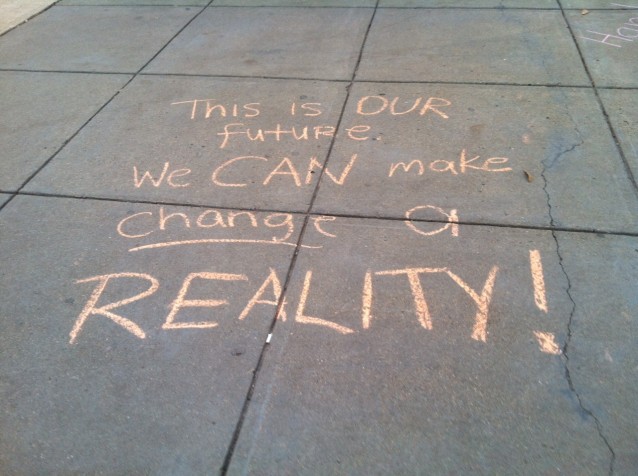 This is OUR
future.
We CAN make
change a
REALITY!